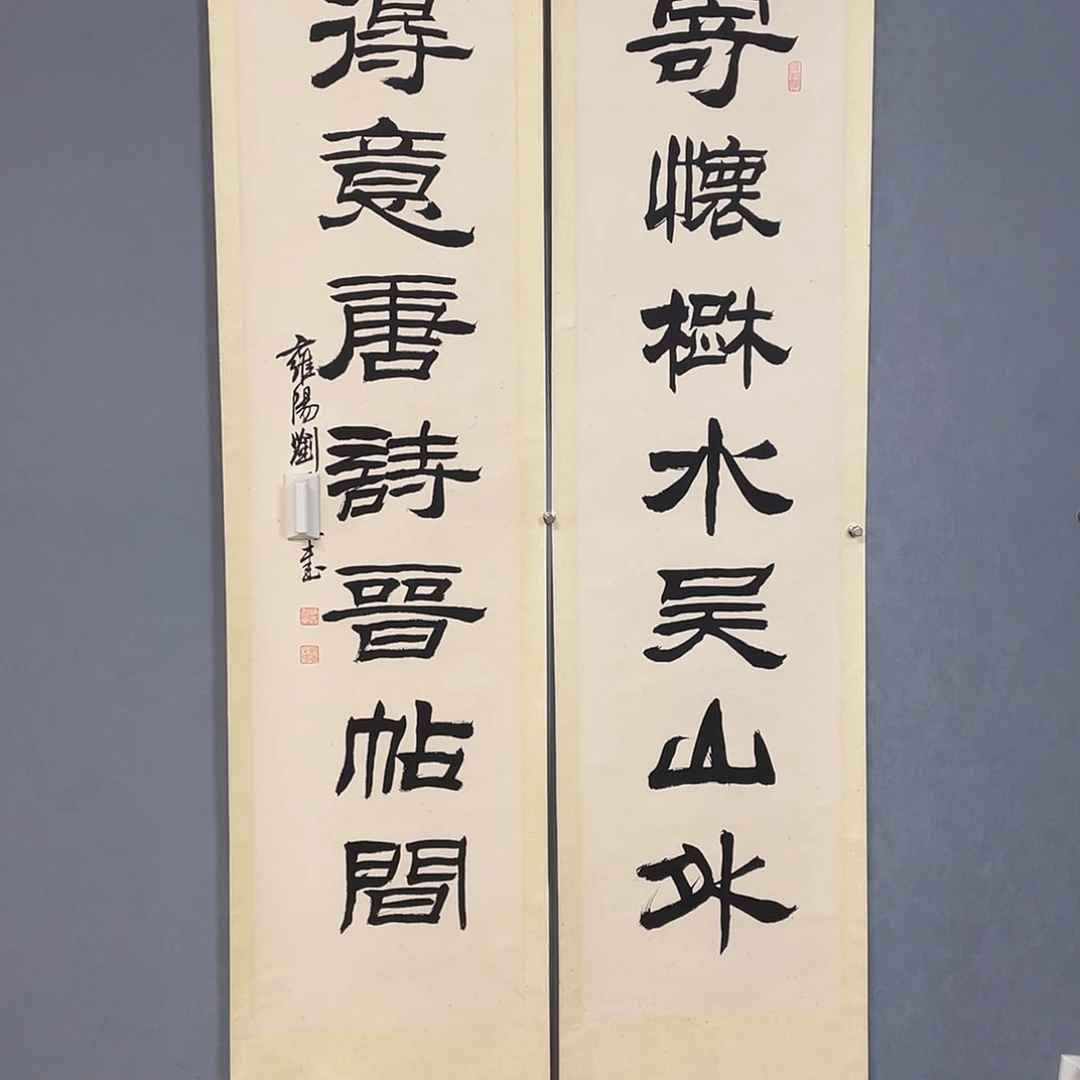 寄懷楚水吳山外
得意唐詩晉帖間
雍陽劉
書